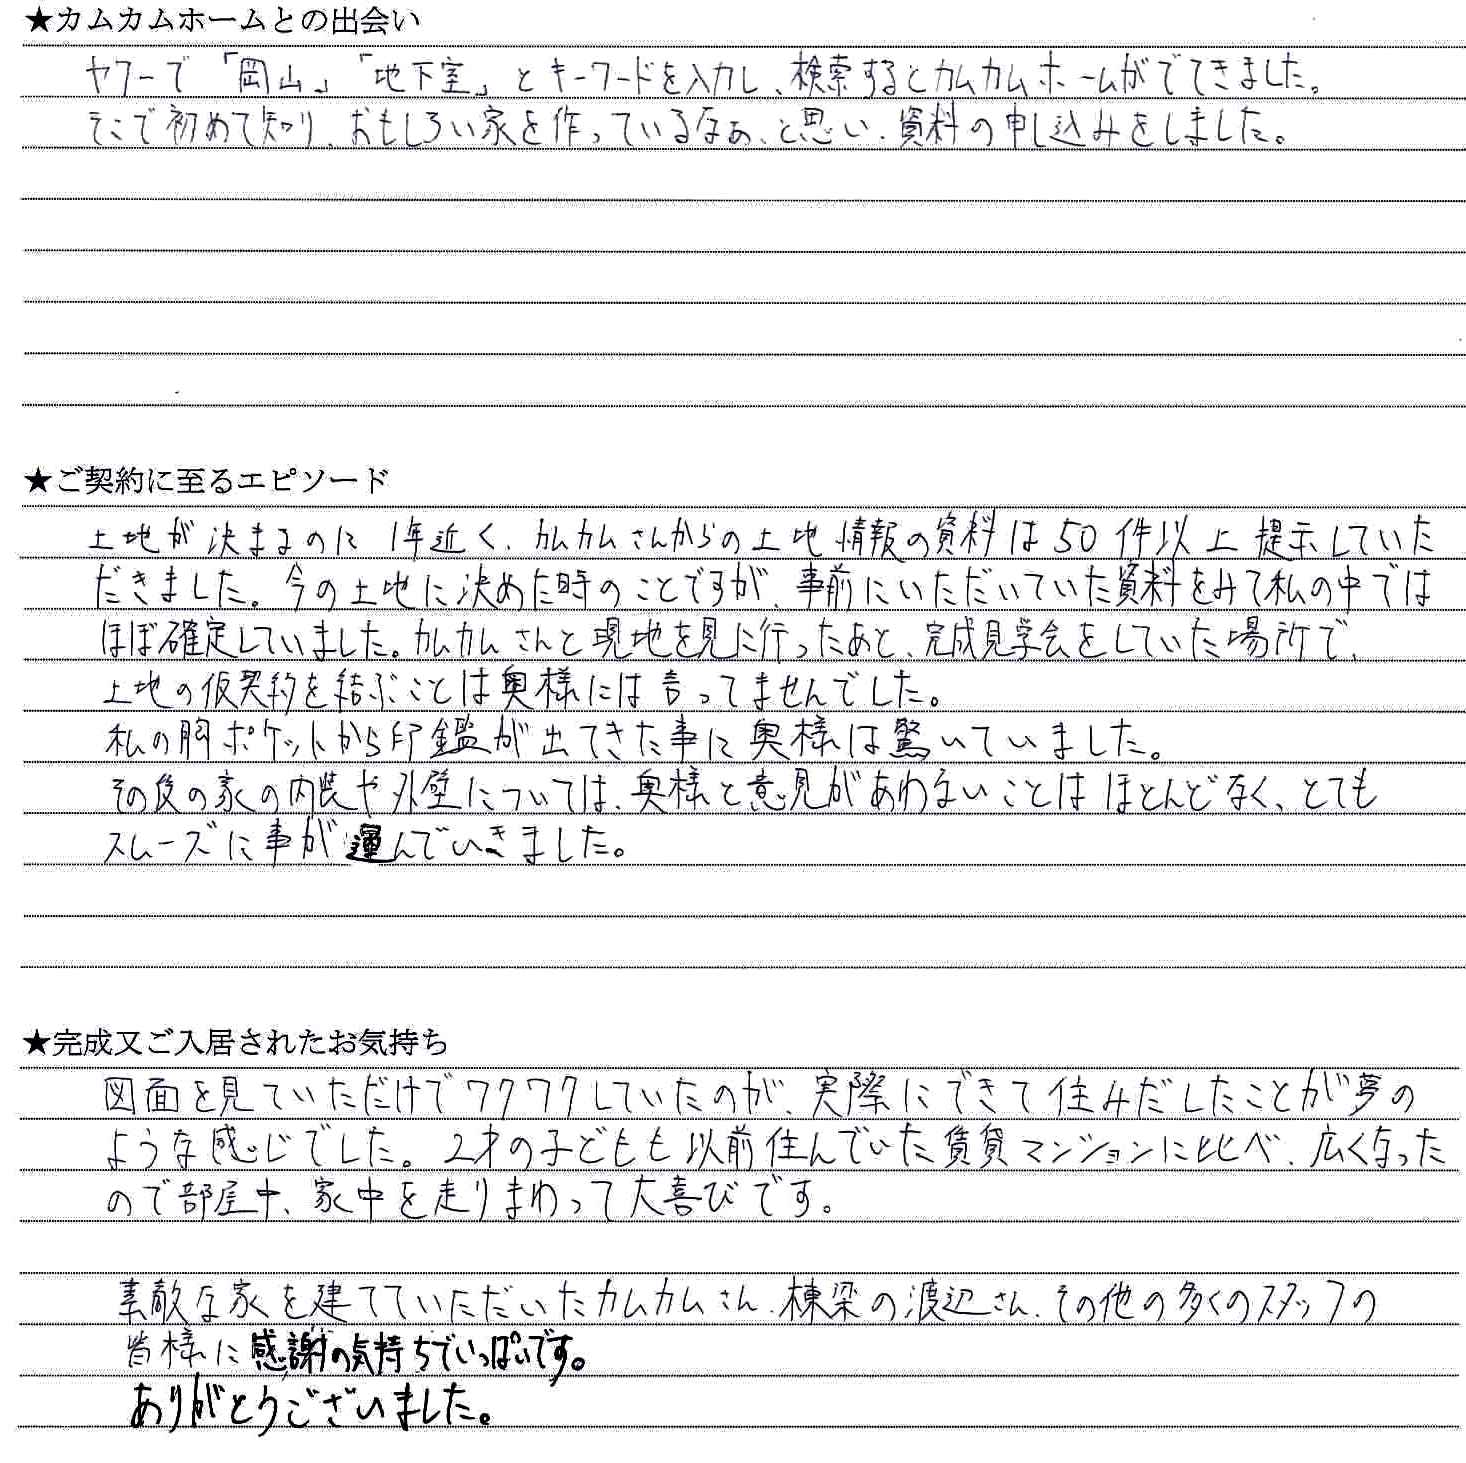 ★カムカムホームとの出会い
ヤフーで「岡山」「地下室」とキーワードを入力し、検索するとカムカムホームがでてきました。
そこで初めて知り、おもしろい家を作っているなぁ、と思い、資料の申し込みをしました。
★ご契約に至るエピソード
土地が決まるのに1年近く、カムカムさんからの土地情報の資料は50件以上提示していた
だきました。今の土地に決めた時のことですが、事前にいただいていた資料をみて私の中では
ほぼ確定していました。カムカムさんと現地を見に行ったあと、完成見学会をしていた場所で、
土地の仮契約を結ぶことは奥様には言ってませんでした。
私の胸ポケットから印鑑が出てきた事に奥様は驚いていました。
その後の家の内装や外壁については、奥様と意見があわないことはほとんどなく、とても
スムーズに事が運んでいきました。
★完成又ご入居されたお気持ち
図面を見ていただけでワクワクしていたのが、実際にできて住みだしたことが夢の
ような感じでした。2才の子どもも以前住んでいた賃貸マンションに比べ、広くなった
ので部屋中、家中を走りまわって大喜びです。
素敵な家を建てていただいたカムカムさん、棟梁の渡辺さん、その他の多くのスタッフの
皆様に感謝の気持ちでいっぱいです。
ありがとうございました。